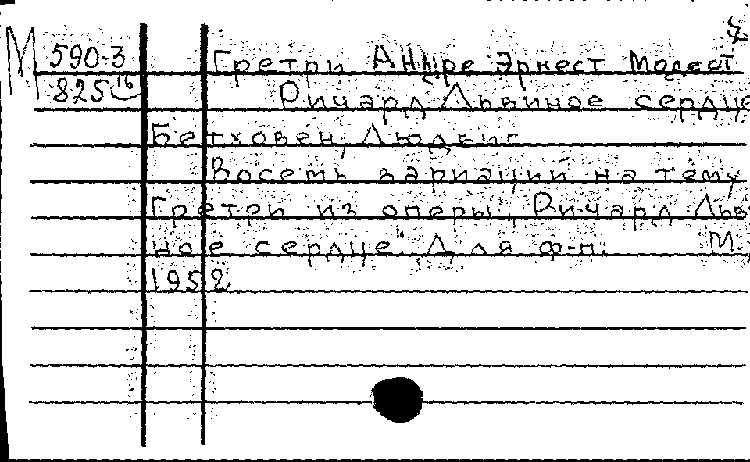 М 590-3 Гретри Андре Эрнест Модест
825 16 Ричард Львиное сердце
Бетховен, Людвиг
Восемь вариаций на тему
Гретри из оперы „Ричард Льви
ное сердце". Для ф-п. М.,
1952